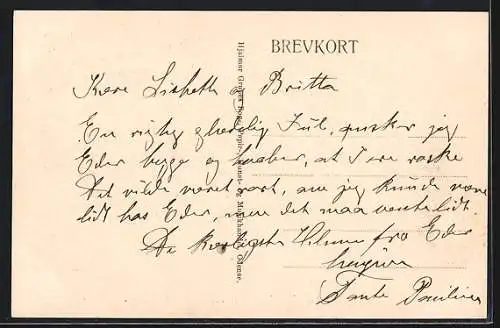 BREVKORT
Kære Lisbeth & Britta
En rigtig glædelig Jul, ønsker jeg
Eder begge og haaber, at I ere raske
Det vilde været rart, om jeg kunde være
lidt hos Eder, men det maa vente lidt.
De kærligste Hilsner fra Eder
hengivne
Tante Pouline
Hjalmar Bog-, Papir-, Kunst- og Musikhandel, Odense.